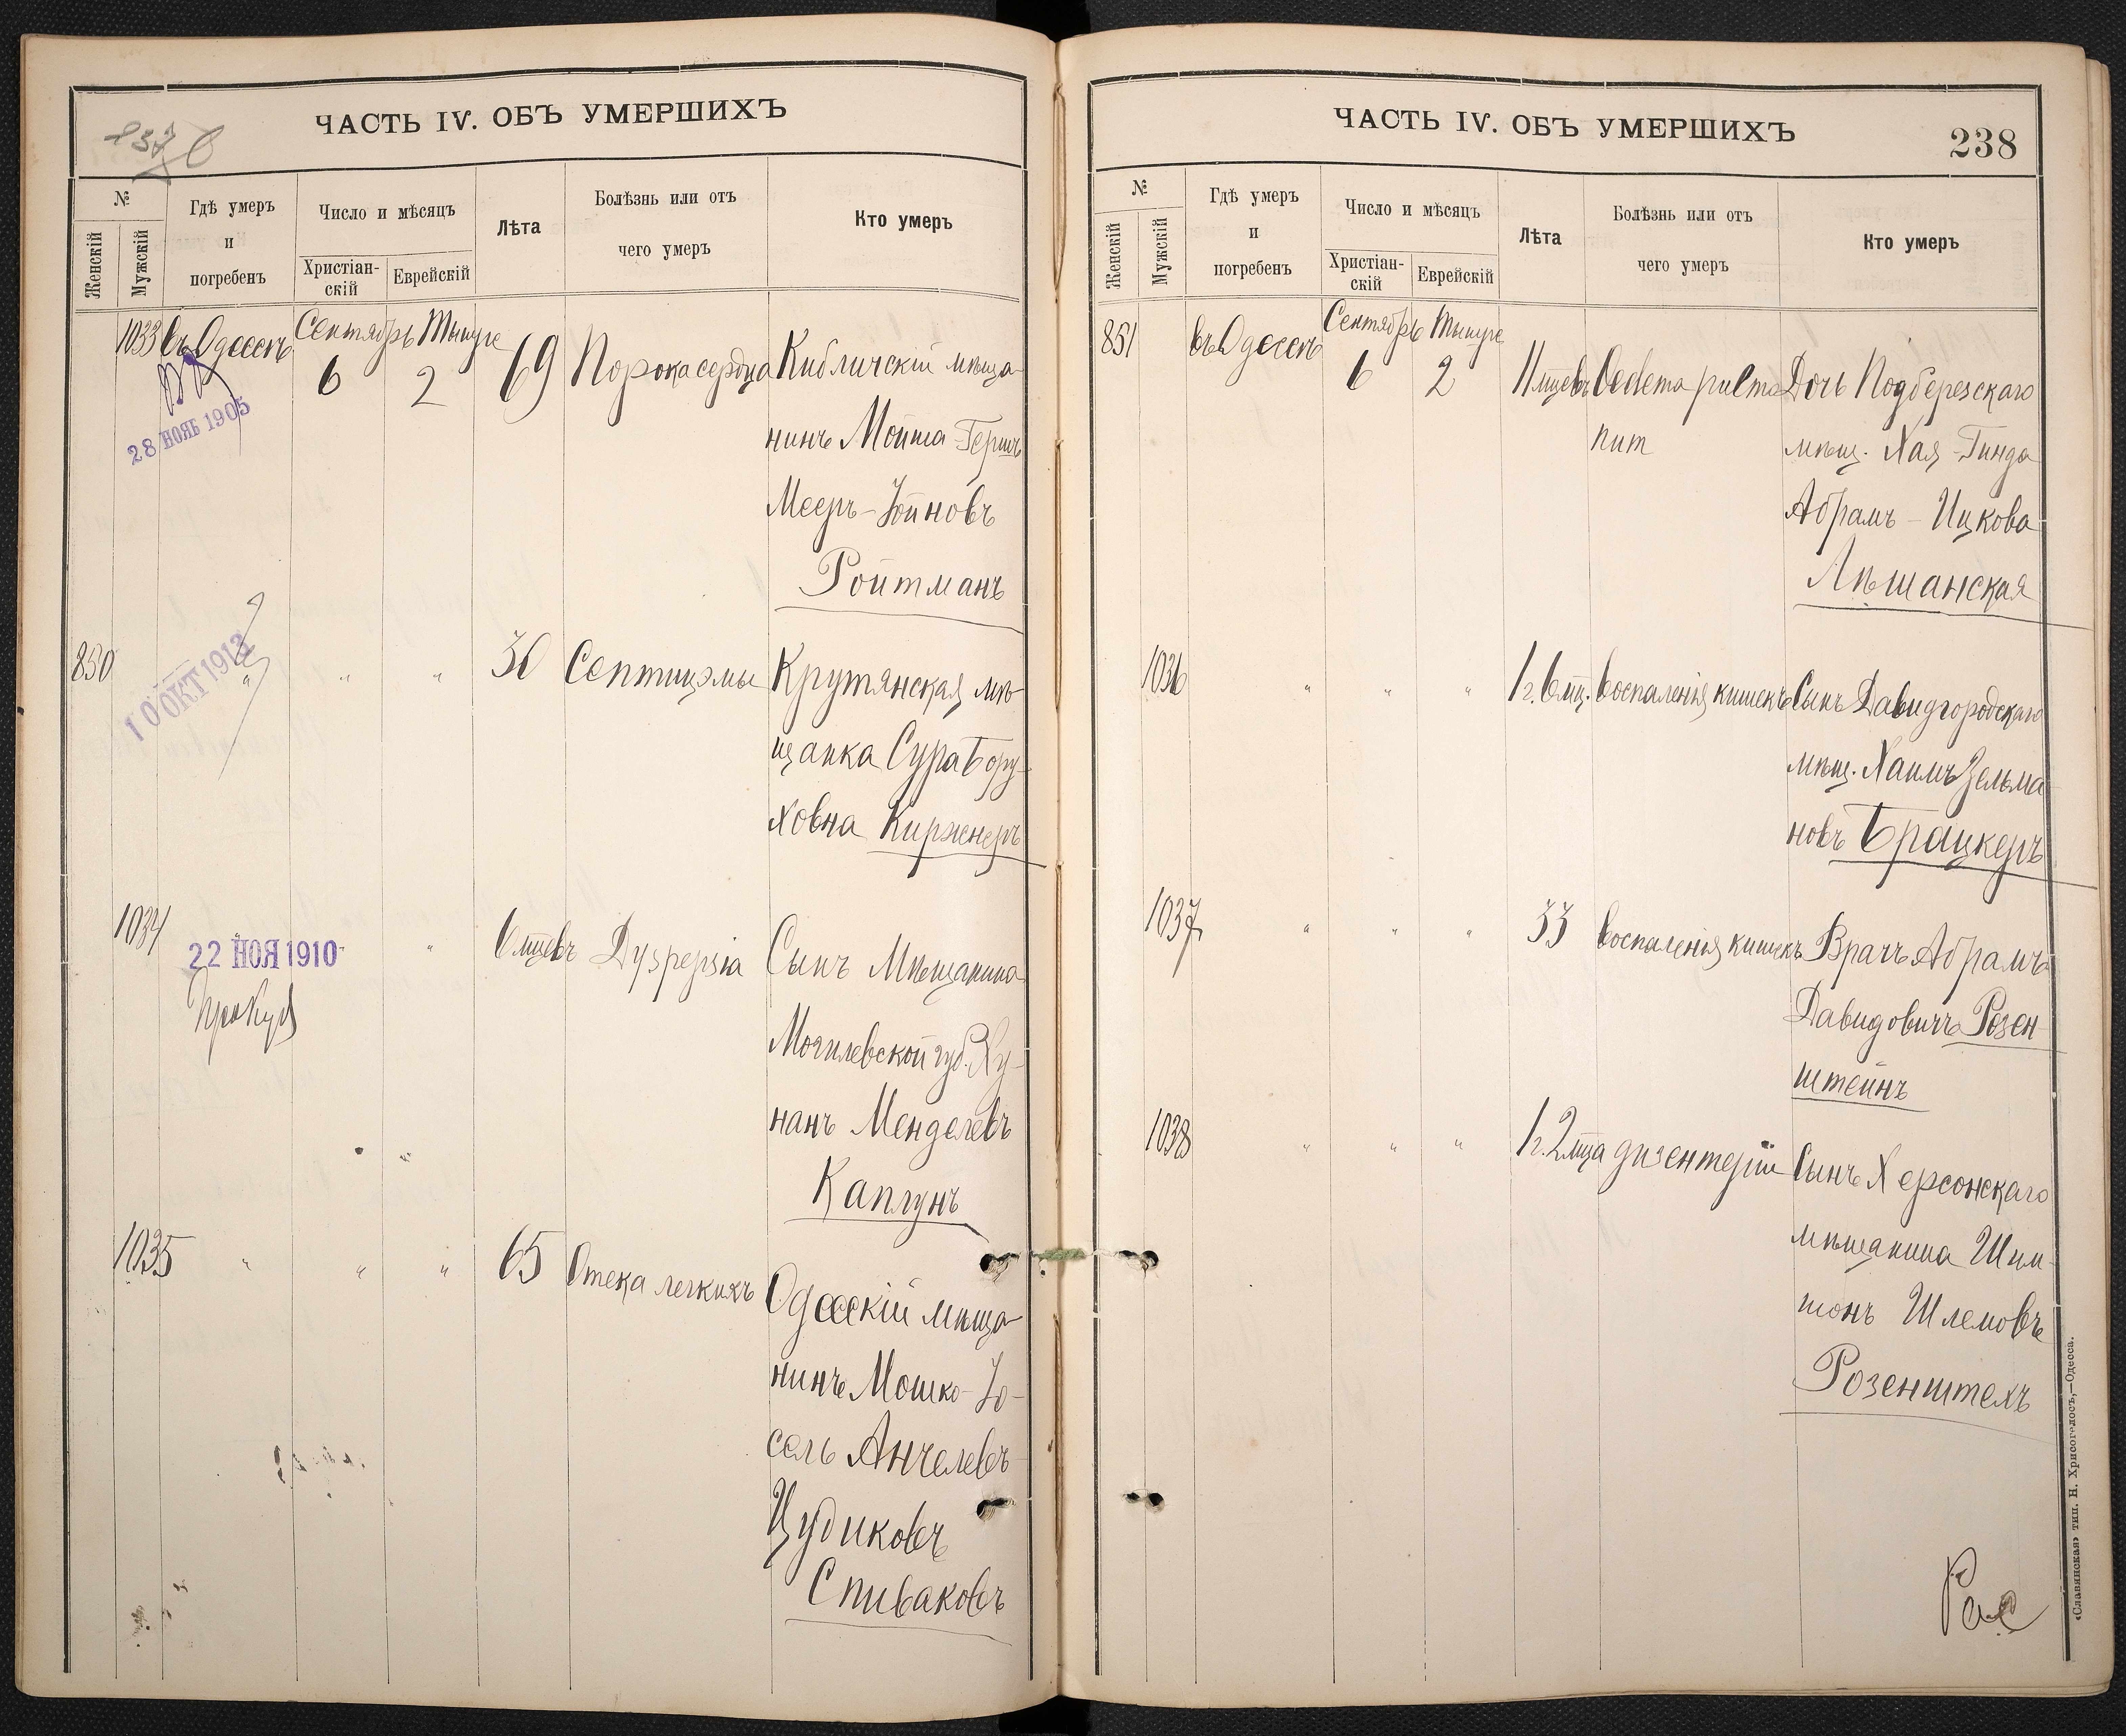 ЧАСТЬ IV. ОБЪ УМЕРШИХЪ
№
Женскій
Мужскій
Гдѣ умеръ
и
погребенъ
Число и мѣсяцъ
Христіан-
скій
Еврейскій
Лѣта
Болѣзнь или отъ
чего умеръ
Кто умеръ
1033 въ Одессѣ Сентябрь Тишре
6 2 69 Порока сердца Кибличскій мѣща-
нинъ Мойша-Гершъ
28 НОЯБ 1905
Мееръ-Іойновъ
Ройтманъ
850 " " " 30 Септицэмы Крутянская мѣ-
10 ОКТ 1913
щанка Сура Бору-
ховна Кирженеръ
1034 " " 6 мцевъ Dyspepsia Сынъ Мѣщанина
22 НОЯ 1910
Могилевской губ. Ху-
нанъ Менделевъ
Каплунъ
1035 " " " 65 Отека легкихъ Одесскій мѣща-
нинъ Мошко-Іо-
сель Анчелевъ-
Цудиковъ
Спиваковъ
ЧАСТЬ IV. ОБЪ УМЕРШИХЪ
238
№
Женскій
Мужскій
Гдѣ умеръ
и
погребенъ
Число и мѣсяцъ
Христіан-
скій
Еврейскій
Лѣта
Болѣзнь или отъ
чего умеръ
Кто умеръ
851 въ Одессѣ Сентябрь Тишре
6 2 11 мцевъ Oedema pulmo Дочь Подберезскаго
num мѣщ. Хая-Гинда
Абрамъ-Ицкова
Лѣшанская
1036 " " " 1 г. 6 мц. воспаленія кишекъ Сынъ Давидгородскаго
мѣщ. Хаимъ Зельма
новъ Брацкеръ
1037 " " " 33 воспаленія кишекъ Врачъ Абрамъ
Давидовичъ Розен-
штейнъ
1038 " " " 1 г. 2 мца дизентеріи Сынъ Херсонскаго
мѣщанина Шим-
шонъ Шлемовъ
Розенштехъ
«Славянская» тип. Н. Хрисогелосъ,—Одесса.